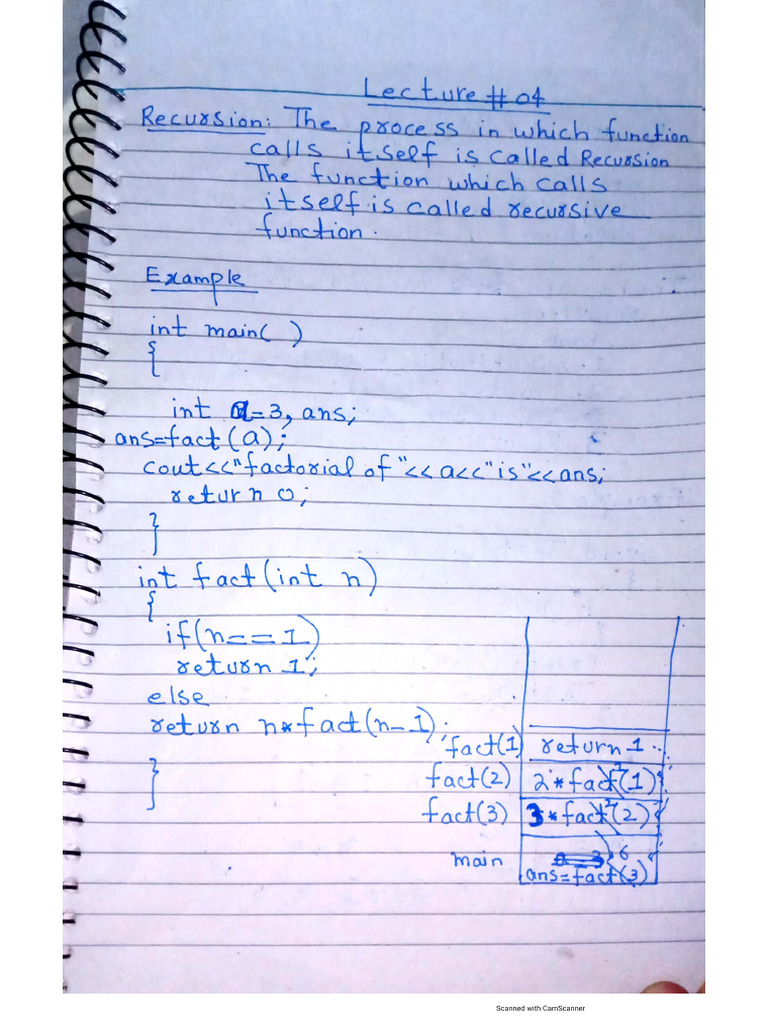 Lecture # 04
Recursion: The process in which function
calls itself is called Recursion
The function which calls
itself is called recursive
function.
Example
int main( )
{
int a=3, ans;
ans=fact(a);
cout<<"factorial of "<<a<<"is"<<ans;
return 0;
}
int fact(int n)
{
if(n==1)
return 1;
else
return n*fact(n-1);
}
fact(1) return 1
fact(2) 2*fact(1)
fact(3) 3*fact(2)
main 6
ans=fact(3)
Scanned with CamScanner